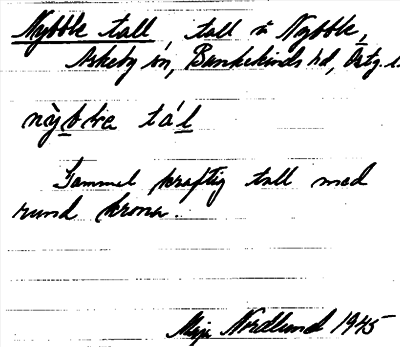 Nybble tall tall i Nybble,
Askeby sn, Bankekinds hd, Östg. l.
nỳb̲ble tál̲
Gammel kraftig tall med
rund krona.
Maja Nordlund 1945